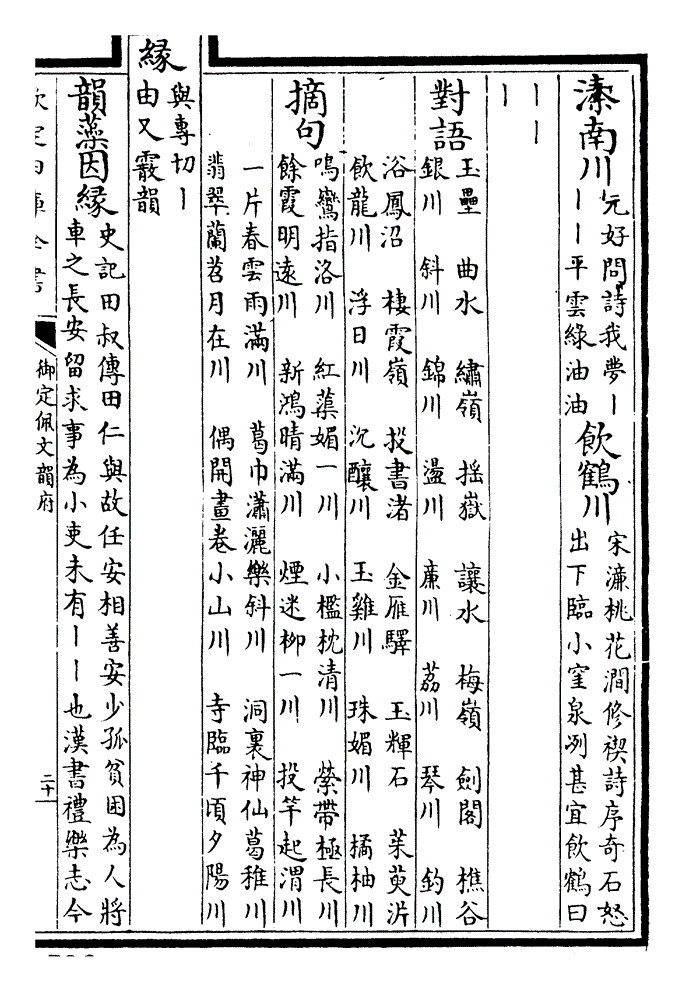 溱南川 元好問詩我夢丨
丨丨平雲綠油油 飲鶴川 宋濂桃花澗修禊詩序奇石怒
出下臨小窪泉冽甚宜飲鶴曰
丨丨
丨
對語 玉壘 曲水 繡嶺 揺嶽 讓水 梅嶺 劍閣 樵谷
銀川 斜川 錦川 盪川 亷川 荔川 琴川 釣川
浴鳳沼 棲霞嶺 投書渚 金雁驛 玉輝石 茱萸沜
飲龍川 浮日川 沉釀川 玉雞川 珠媚川 橘柚川
摘句 鳴鸞指洛川 紅蕖媚一川 小檻枕清川 縈帶極長川
餘霞明遠川 新鴻晴滿川 煙迷柳一川 投竿起渭川
一片春雲雨滿川 葛巾瀟灑樂斜川 洞裏神仙葛稚川
翡翠蘭苕月在川 偶開畫卷小山川 寺臨千頃夕陽川
緣 與專切丨
由又霰韻
韻藻因緣 史記田叔傳田仁與故任安相善安少孤貧困為人將
車之長安留求事為小吏未有丨丨也漢書禮樂志今
欽定四庫全書
御定佩文韻府
二十